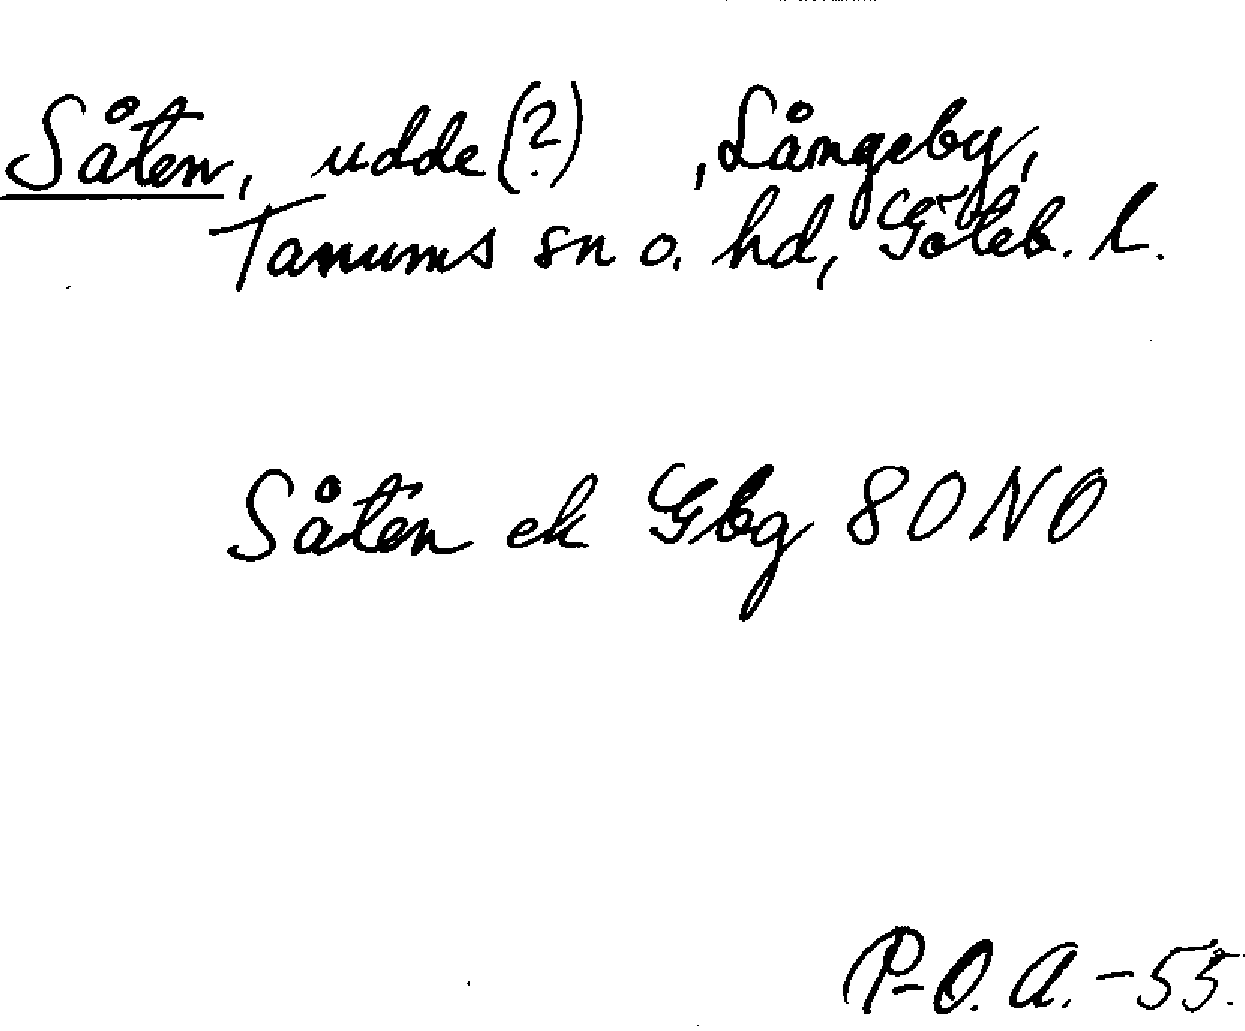 Såten, udde (?) , Långeby,
Tanums sn o. hd, Göteb. l.
Såten ek Gbg 80 NO
P-O. A. - 55.